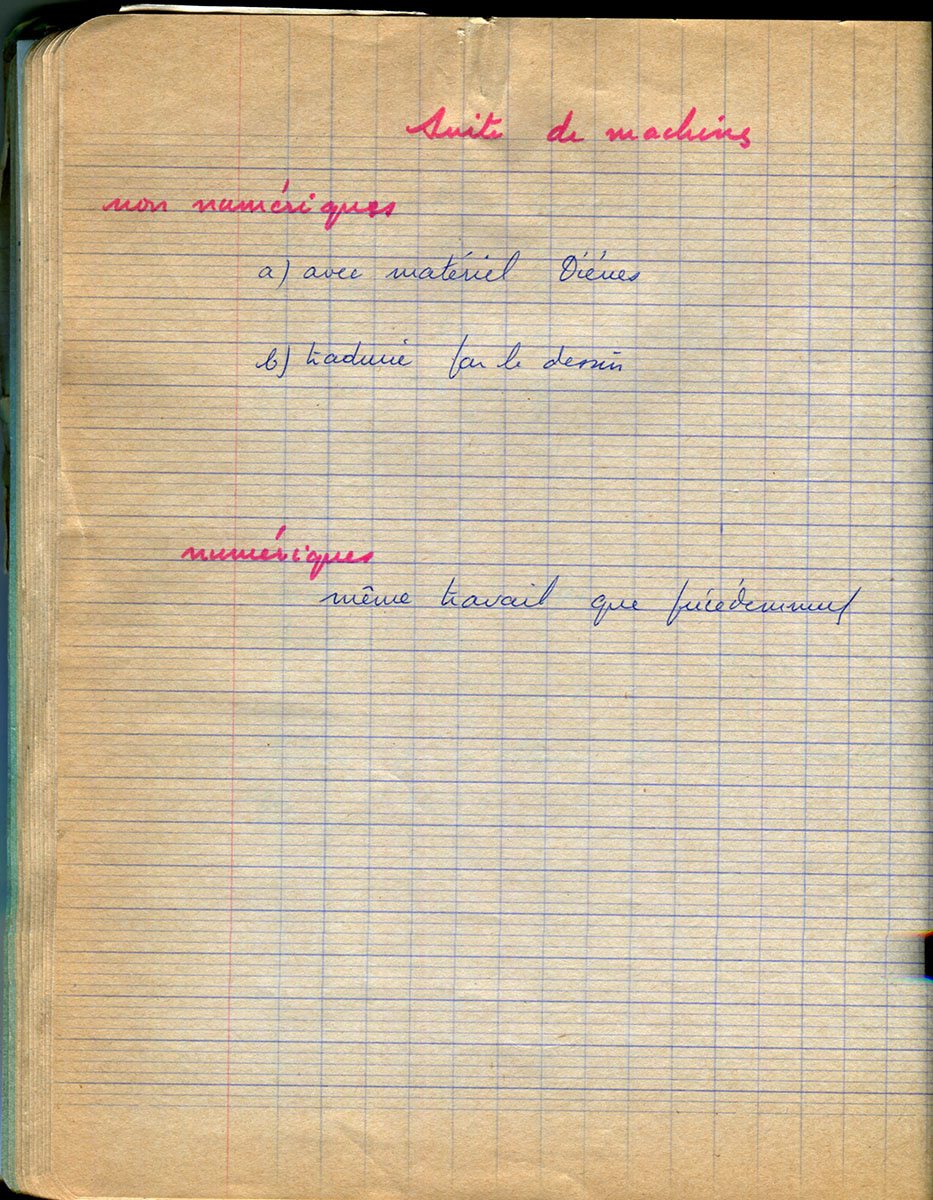 Suite de machines
non numériques
a) avec matériel Diénes
b) traduire par le dessin
numériques
même travail que précédemment